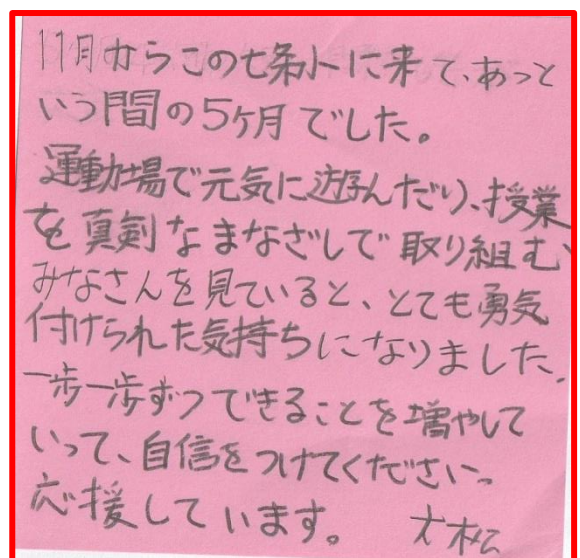 11月からこの七条小に来て、あっと
いう間の5ヶ月でした。
運動場で元気に遊んだり、授業
を真剣なまなざしで取り組む
みなさんを見ていると、とても勇気
付けられた気持ちになりました。
一歩一歩ずつできることを増やして
いって、自信をつけてください。
応援しています。 大松